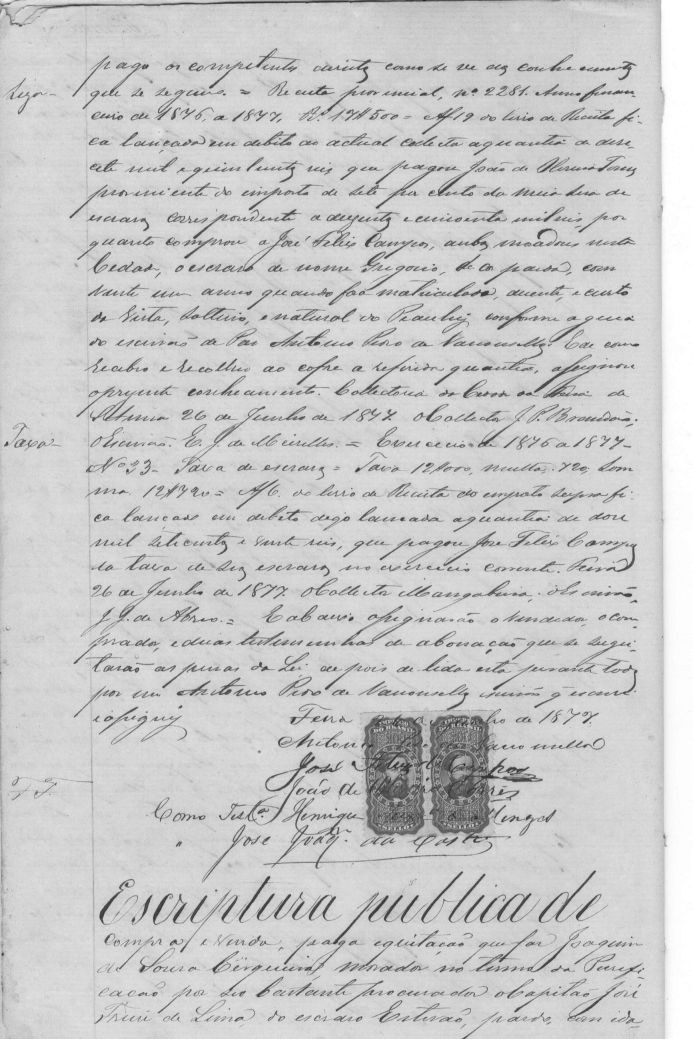 pago os competentes direitos como se ve dos conhecimentos
Siza
que se seguem. = Receita provincial, nº 2281. Anno finan-
ceiro de 1876 a 1877. Rs. 17$500 = Af 19 do livro de Receita fi-
ca lançada em debito ao actual collector a quantia de dese-
cete mil e quinhentos reis que pagou João de Torres
proveniente do imposto de sete por cento da meia siza de
escravos correspondente a duzentos e cincoenta mil reis, por
quanto comprou a José Felix Campos, ambos moradores nesta
Cidade, o escravo de nome Gregorio, de cor parda, com
vinte um annos quando foi matriculado, aliás, e
solteiro, e natural do Piauhy conforme a guia
do escrivão de Paz Antonio Pedro de Vasconcellos. E de como
recebeo e recolheo ao cofre a referida quantia, assignou
o presente conhecimento. Collectoria da Cidade da Feira de
Sta Anna 26 de Junho de 1877. O Collector J. P. Brandão,
Taxa
O Escrivão. E. J. de Meirelles. = Exercicio de 1876 a 1877 -
Nº 33 - Taxa de escravos = Taxa 12$000, multa 720, Som-
ma 12$720 = Af 6. do livro de Receita do imposto supra fi-
ca lançada em debito digo lançada a quantia de doze
mil setecentos e vinte reis, que pagou José Felix Campos
da taxa de seus escravos no exercicio corrente. Feira
26 de Junho de 1877. O Collector Mangabeira. O Escrivão,
J. J. de Abreu. = E abaixo assignarão o vendedor, o com-
prador, e duas testemunhas de abonação que se sugei-
tarão as penas da Lei depois de lida esta perante todos
por mim Antonio Pedro de Vasconcellos escrivão q escrevi
e assigney Feira de 1877.
Antonio Vasconcellos
José Felix de Campos
João de Torres
Como Testª. Henrique Menezes
" José Joaqm. da Costa
Escriptura publica de
compra e venda, paga e quitação que faz Joaquim
de Souza Cerqueira, morador no termo da Purifi-
cação por seo bastante procurador o Capitão José
Freire de Lima, do escravo Estevão, pardo, com ida-